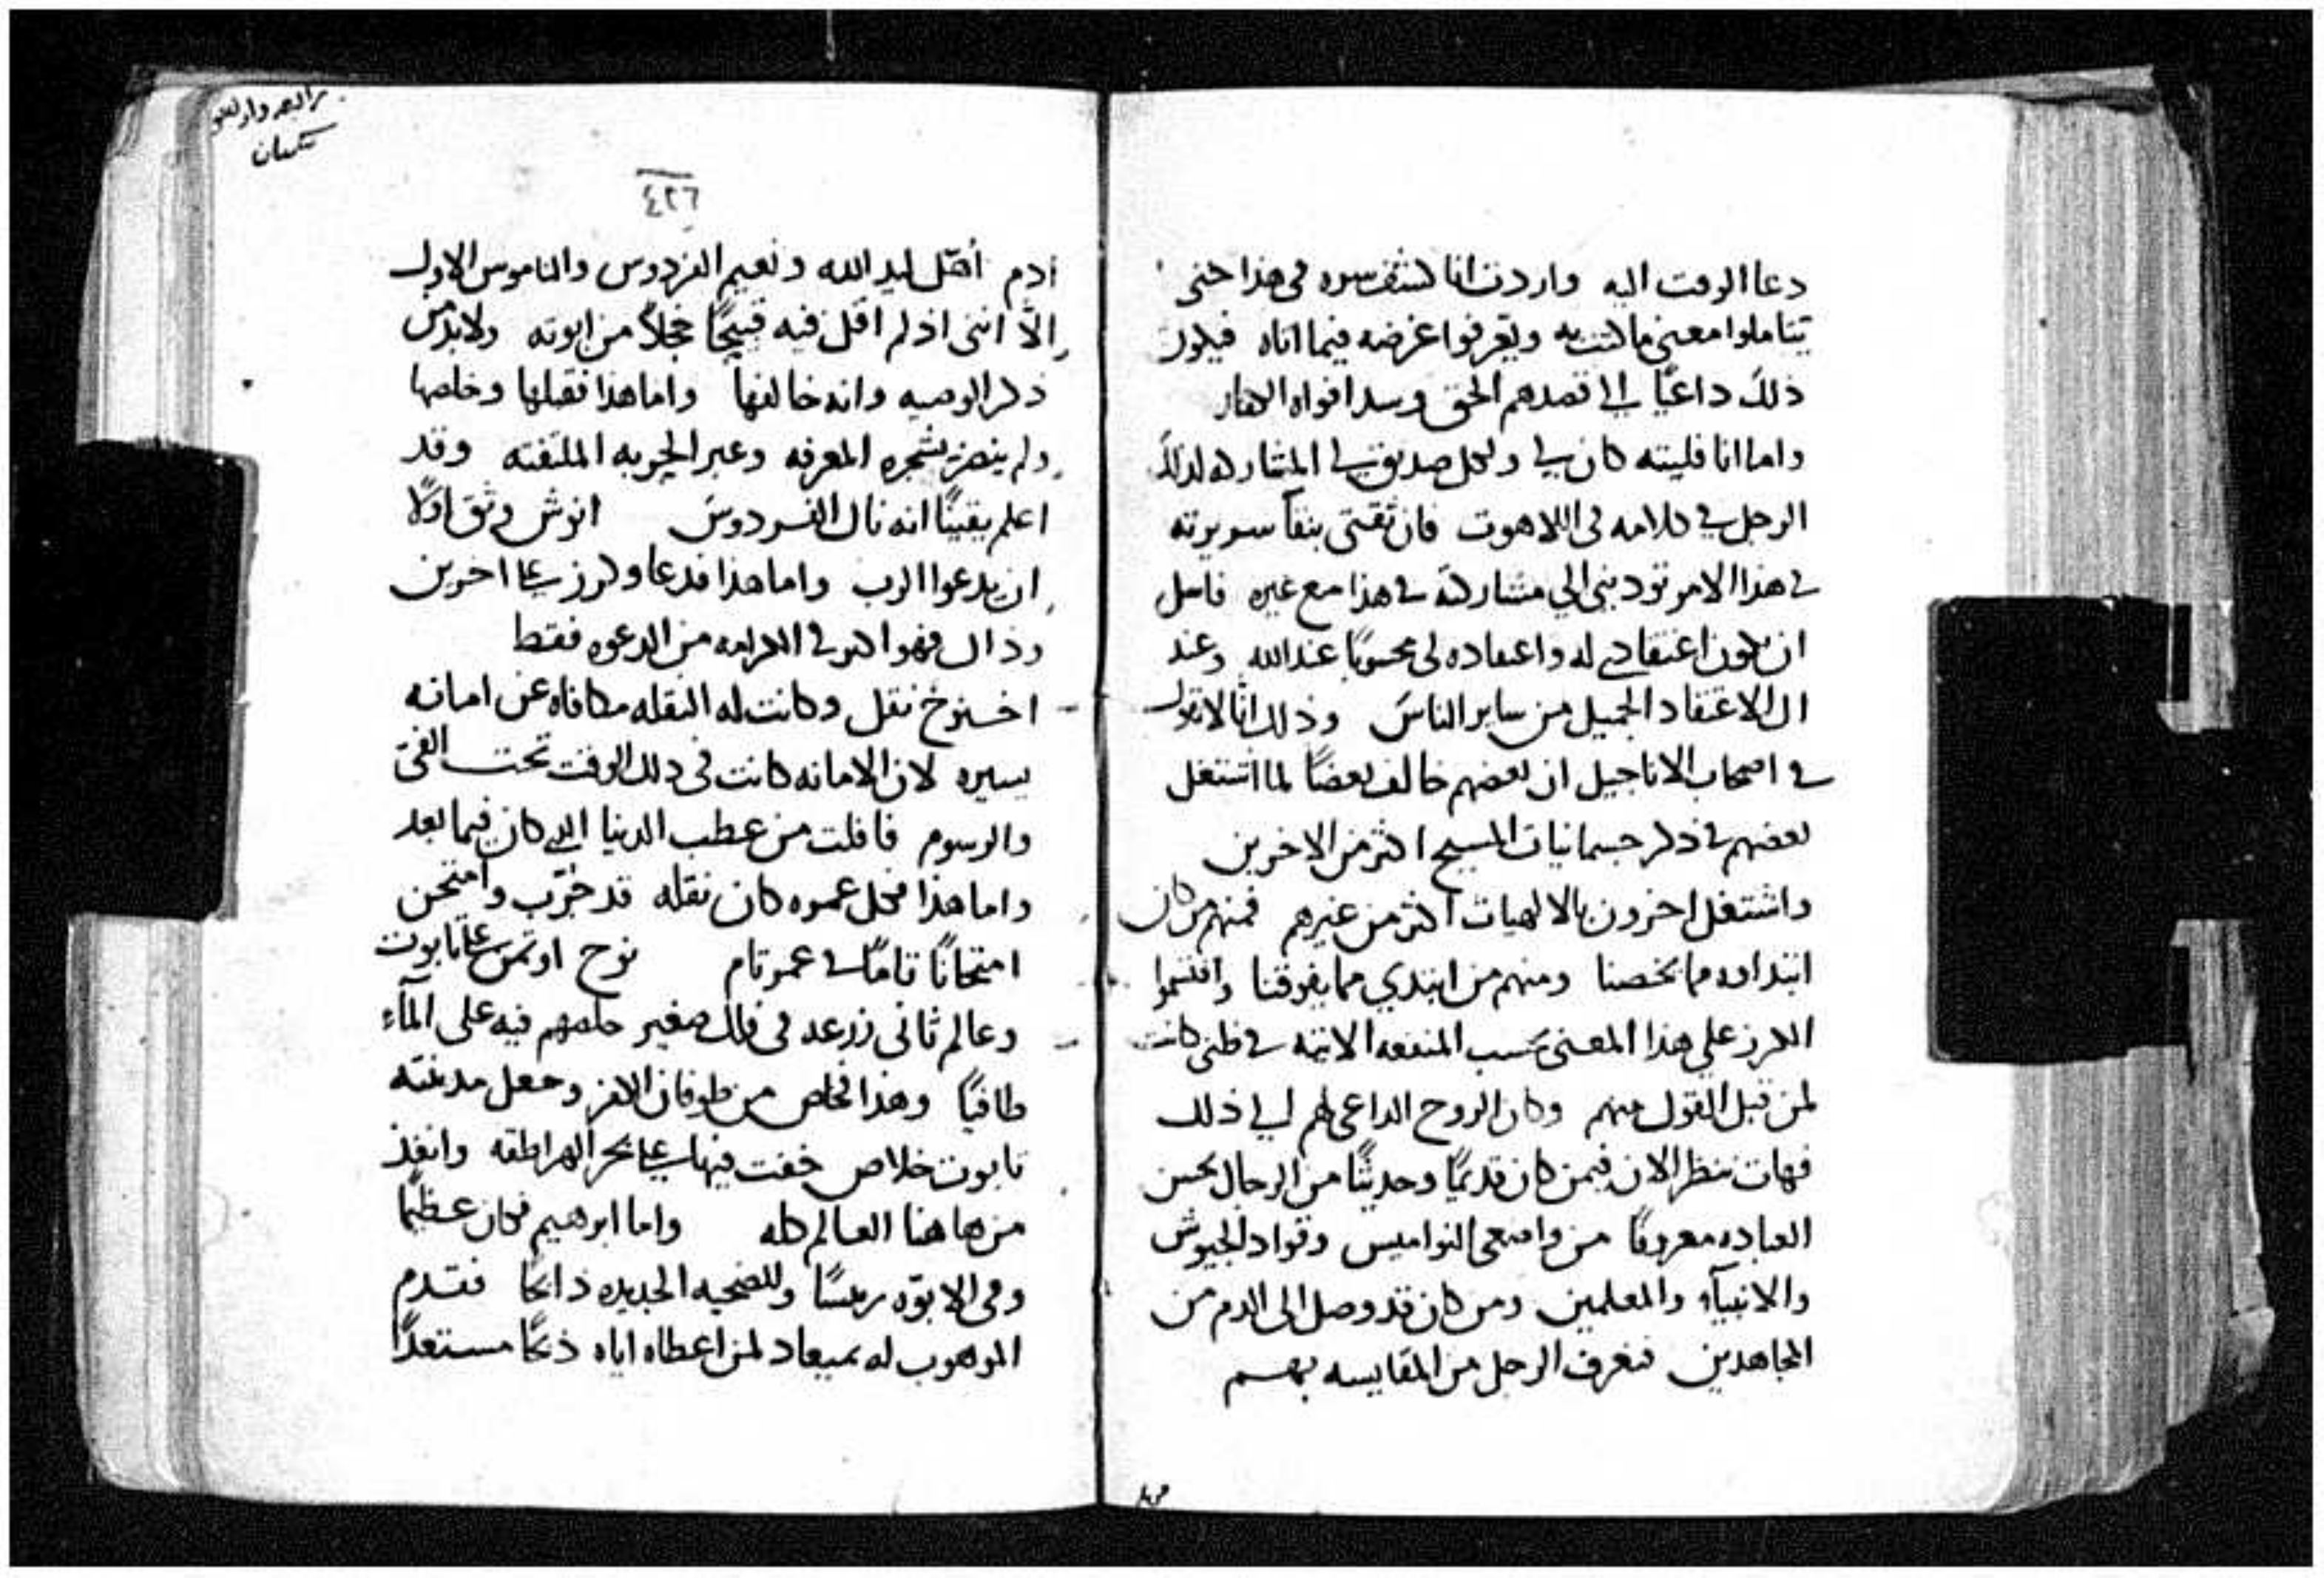 دعا الوقت اليه واردت انا كشف سره فى هذا حتى
يتاملوا معنى ما كتب به ويعرفوا غرضه فيما اتاه فيكون
ذلك داعيًا الى قصدهم الحق وسد افواه الكفار
واما انا فليته كان لي ولكل صديق لي المشاركه لذلك
الرجل في كلامه فى اللاهوت فان ثقتى بنقآ سريرته
في هذا الامر تودينى الي مشاركته في هذا مع غيره فاسل
ان يكون اعتقادي له واعتقاده لى محسوبًا عند الله وعند
ال الاعتقاد الجميل من ساير الناس وذلك انا لا نقول
في اصحاب الاناجيل ان بعضهم خالف بعضًا لما اشتغل
بعضهم في ذكر جسمانيات المسيح اكثر من الاخرين
واشتغل اخرون بالالهيات اكثر من غيرهم فمنهم من كان
ابتداوه مما يخصنا ومنهم من ابتدي مما يفوقنا واقتسموا
الكرز علي هذا المعنى بحسب المنفعه الاتيه في ظنى كانت
لمن قبل القول منهم وكان الروح الداعى لهم الي ذلك
فهات ننظر الان فيمن كان قديمًا وحديثًا من الرجال بحسن
العباده معروفًا من واضعى النواميس وقواد الجيوش
والانبيآء والمعلمين ومن كان قد وصل الى الدم من
المجاهدين فنعرف الرجل من المقايسه بهم
٤٢٦
ادم أهّل ليد الله ونعيم الفردوس والناموس الاول
الّا اننى اذ لم اقل فيه قبيحًا خجلاً من ابوته ولابد من
ذكر الوصيه وانه خالفها واما هذا فقبلها وخلصها
ولم ينضر بشجره المعرفه وعبر الحربه الملتفته وقد
اعلم يقينًا انه نال الفردوس انوش وثق اوّلًا
ان يدعوا الرب واما هذا فدعا وكرز علي اخرين
وذاك فهو اكبر في الكرامه من الدعوه فقط
اخنوخ نقل وكانت له النقله مكافاه عن امانه
يسيره لان الامانه كانت فى ذلك الوقت تحت الفىّ
والرسوم فافلت من عطب الدنيا الذي كان فيما بعد
واما هذا فكل عمره كان نقله قد جُرّب وامتحن
امتحانًا تامًا في عمر تام نوح اوتمن علي تابوت
وعالم ثانى زرعه فى فلك صغير خلصهم فيه على المآء
طافيًا وهذا تخلص من طوفان الكفر وجعل مدينته
تابوت خلاص خفت فيها علي بحر الهراطقه وانقذ
من هاهنا العالم كله واما ابرهيم فكان عظيمًا
وفى الابوّه رييسًا وللضحيه الجديده ذابحًا فقدم
الموهوب له بميعاد لمن اعطاه اياه ذبحًا مستعدًا